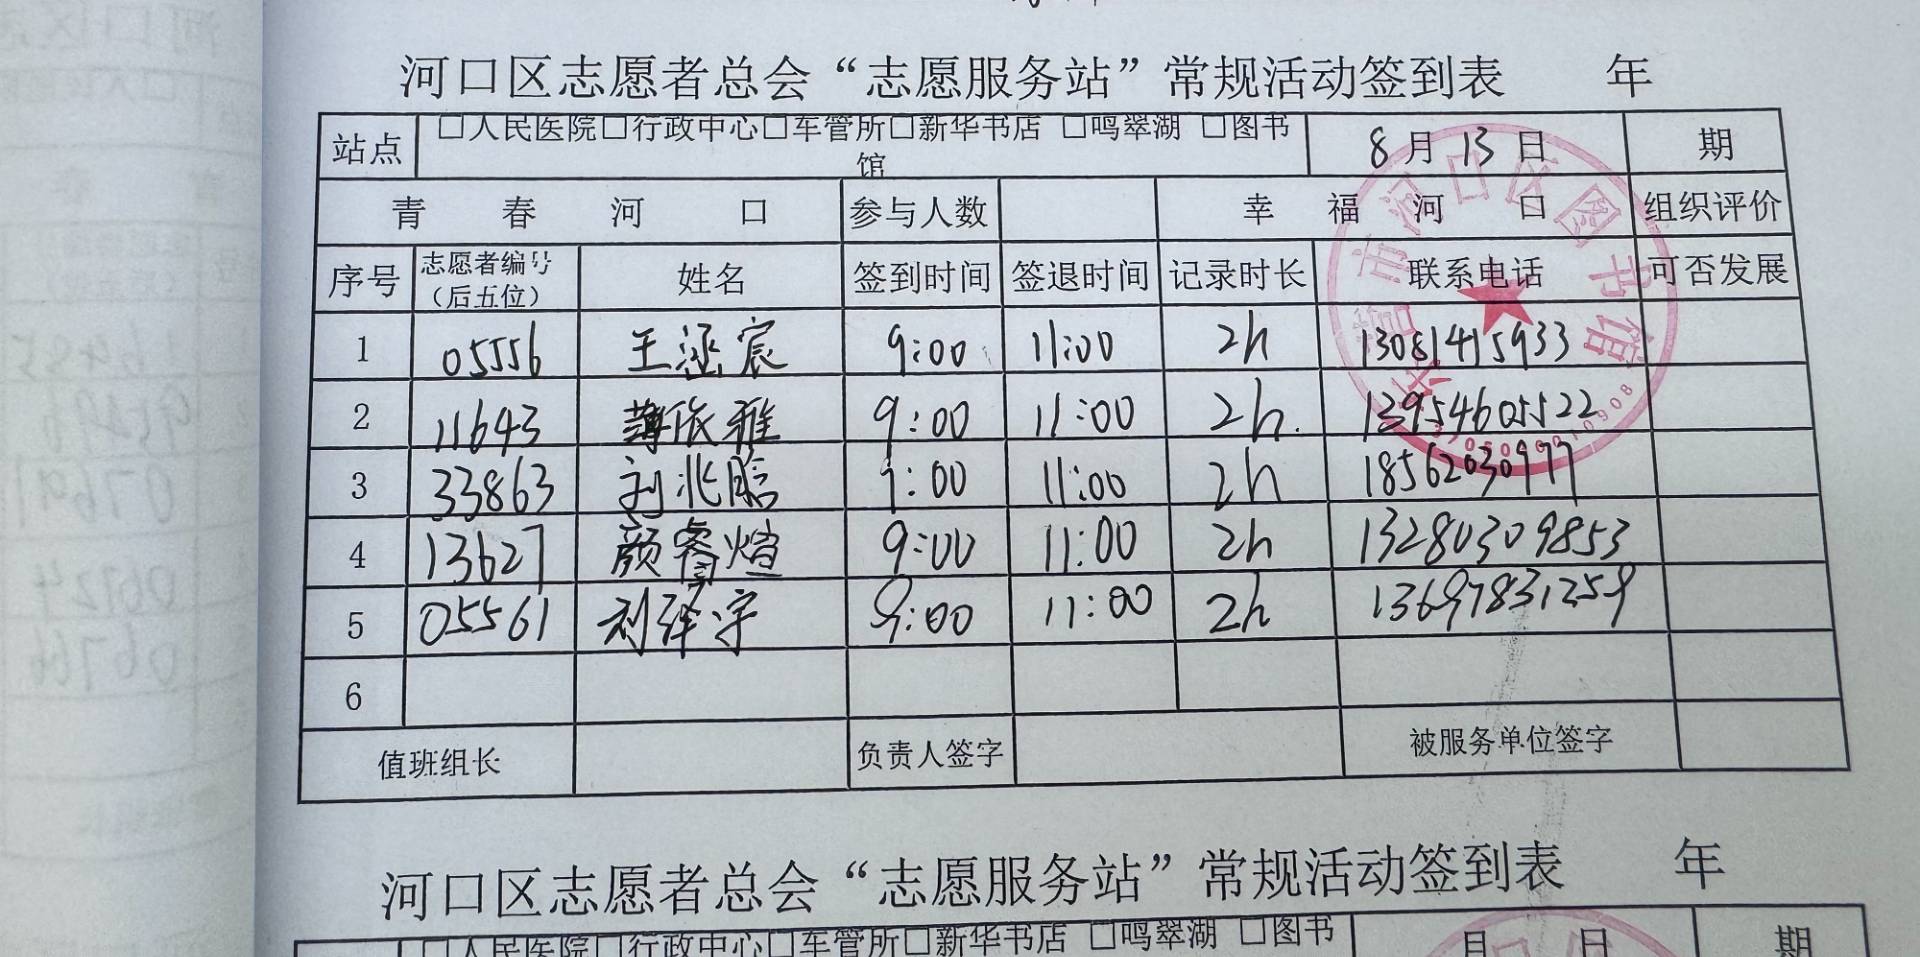 河口区志愿者总会“志愿服务站”常规活动签到表 年
站点 □人民医院□行政中心□车管所□新华书店 □鸣翠湖 □图书馆 8月13日 期
青春河口 参与人数 幸福河口 组织评价
序号 志愿者编号（后五位） 姓名 签到时间 签退时间 记录时长 联系电话 可否发展
1 05556 王涵宸 9:00 11:00 2h 13081415933
2 11643 薄依雅 9:00 11:00 2h. 13954605522
3 33863 刘兆晗 9:00 11:00 2h 18562030977
4 13627 颜睿煊 9:00 11:00 2h 13280309853
5 05561 刘泽宇 9:00 11:00 2h 13697831259
6
值班组长 负责人签字 被服务单位签字
河口区志愿者总会“志愿服务站”常规活动签到表 年
□人民医院□行政中心□车管所□新华书店 □鸣翠湖 □图书 月 日 期